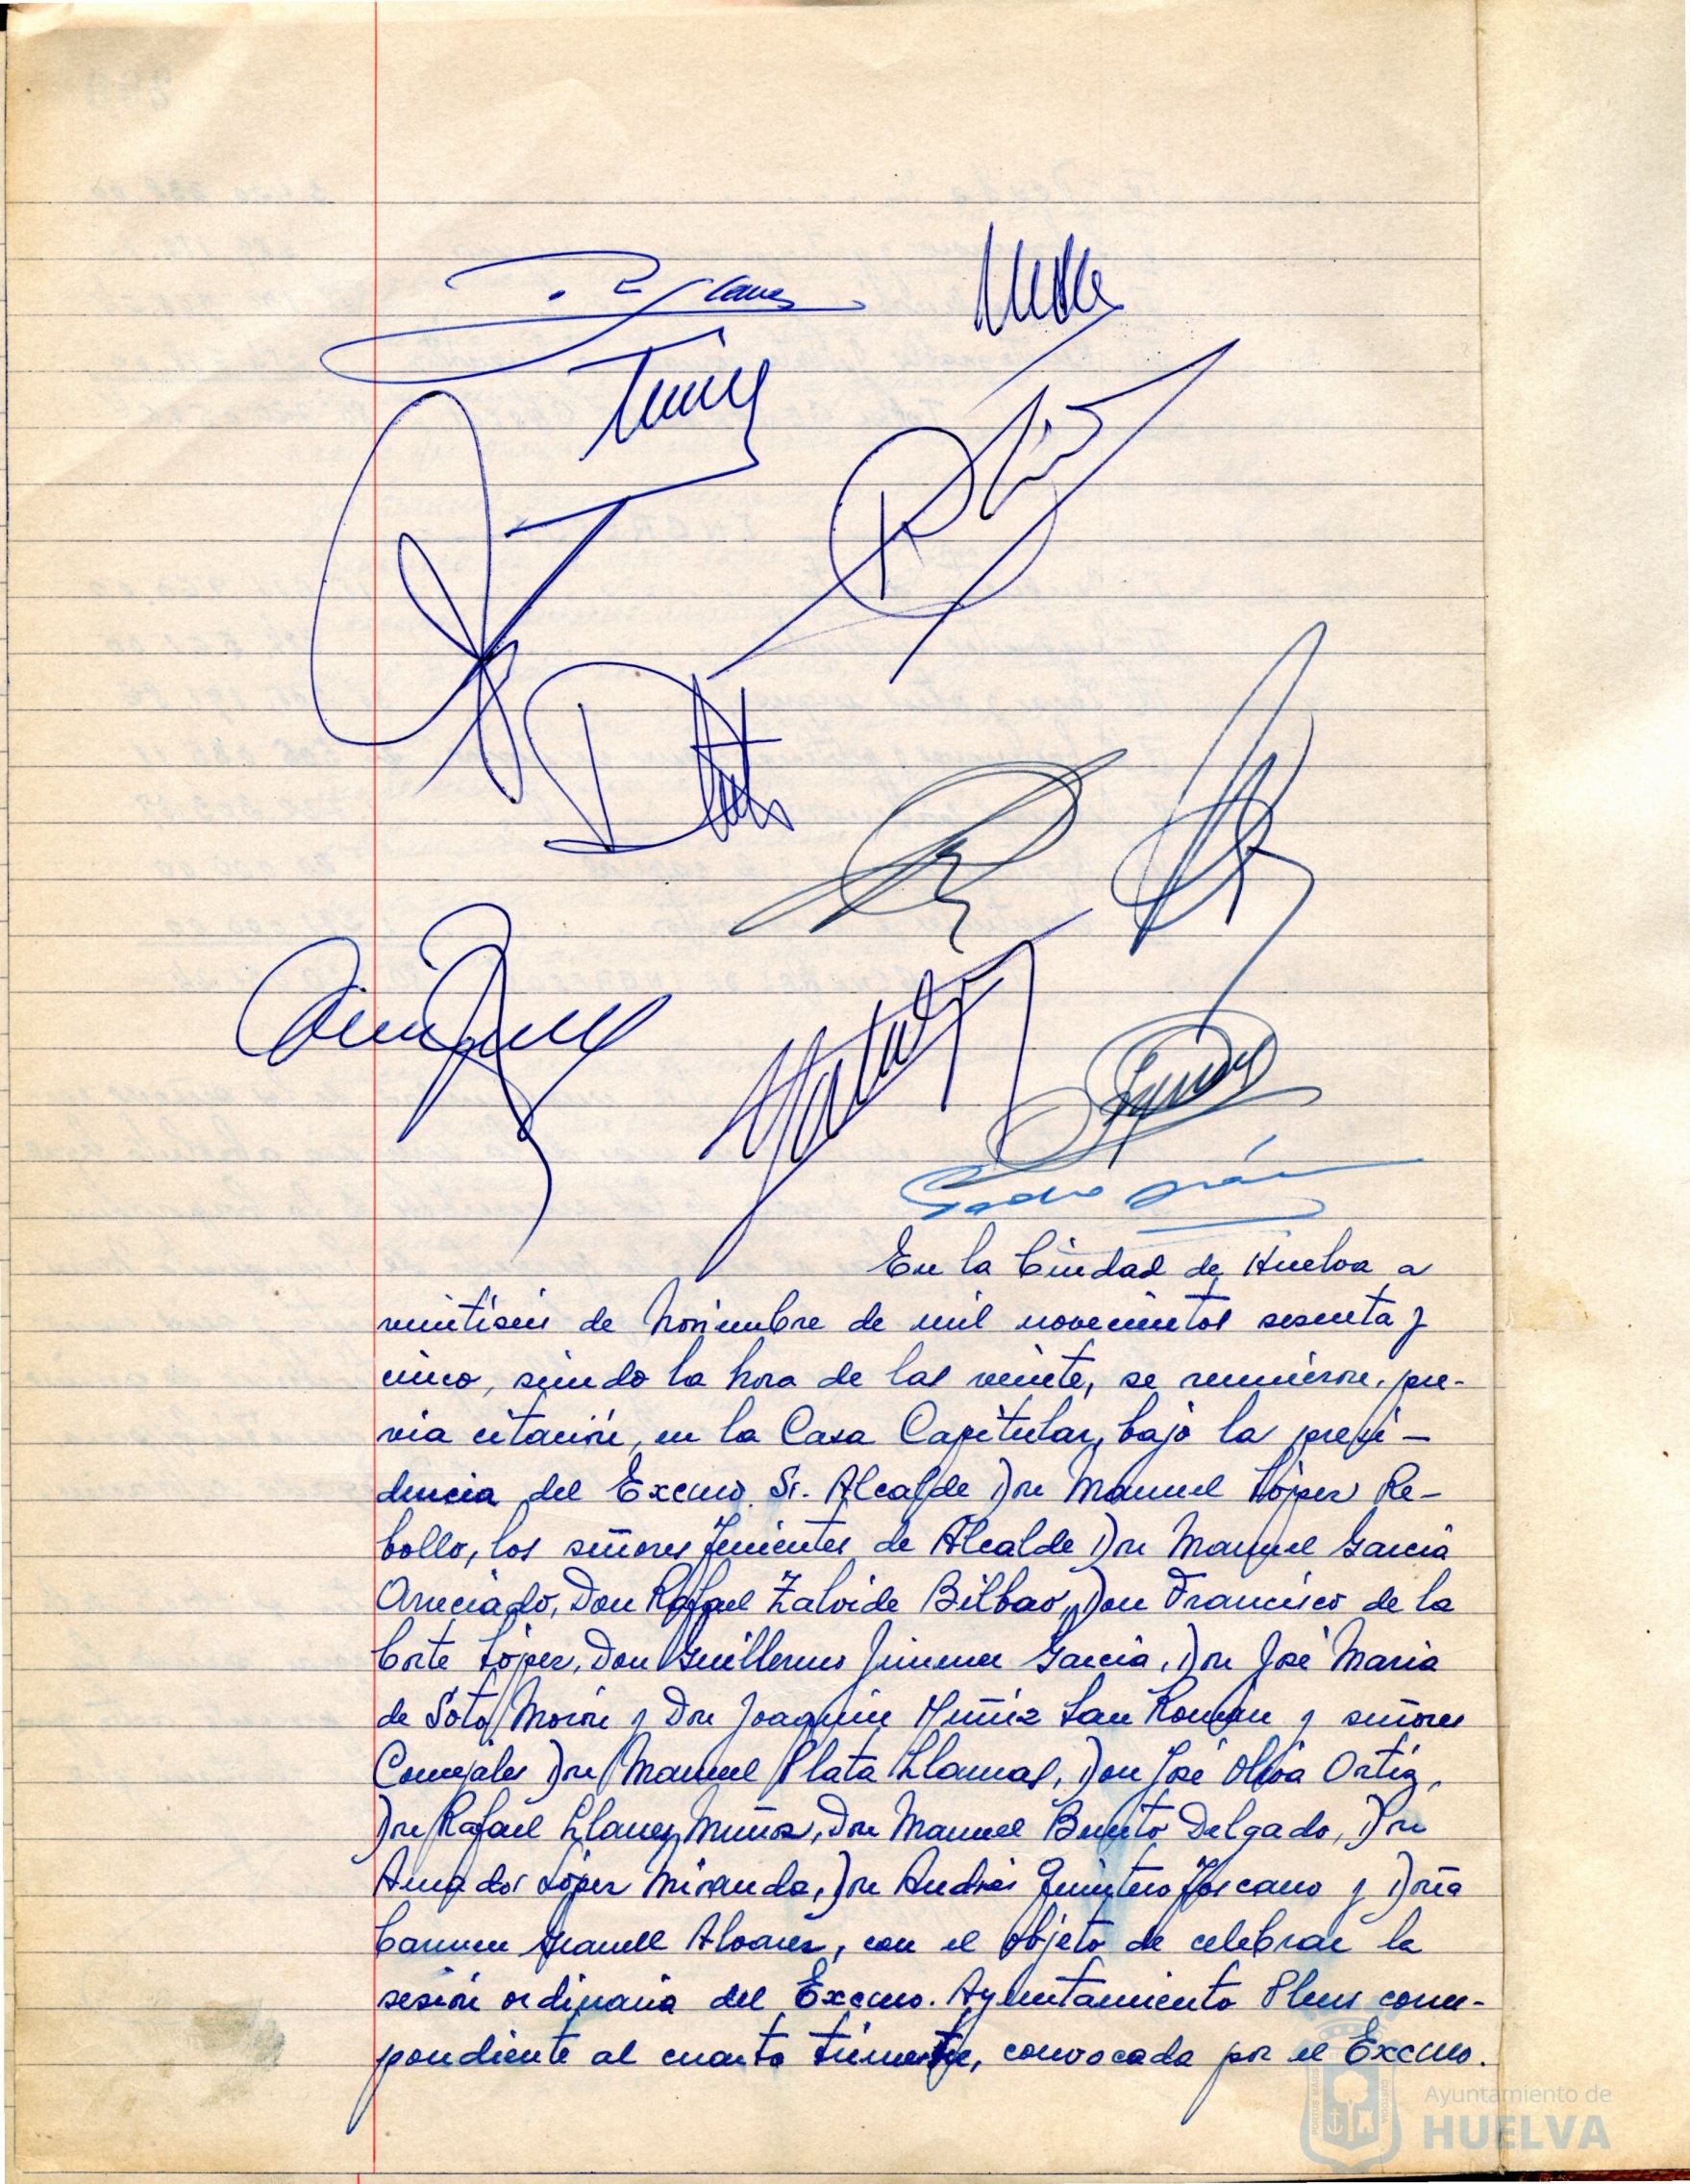 En la Ciudad de Huelva a
veintiseis de Noviembre de mil novecientos sesenta y
cinco, siendo la hora de las veinte, se reunieron, pre-
via citación, en la Casa Capitular, bajo la presi-
dencia del Excmo. Sr. Alcalde Don Manuel López Re-
bollo, los señores Tenientes de Alcalde Don Manuel García
Don Rafael Zalvide Bilbao, Don Francisco de la
Corte López, Don Guillermo Jimenez García, Don José Maria
de Soto Morón y Don Joaquin Muñiz San Román y señores
Concejales Don Manuel Plata Llamas, Don José Oliva Ortiz,
Don Rafael Llanes Muñoz, Don Manuel Benito Delgado, Don
Amador López Miranda, Don Andrés Quintero Toscano y Doña
Carmen Granell Alvarez, con el objeto de celebrar la
sesión ordinaria del Excmo. Ayuntamiento Pleno corres-
pondiente al cuarto trimestre, convocada por el Excmo.
Ayuntamiento de
HUELVA